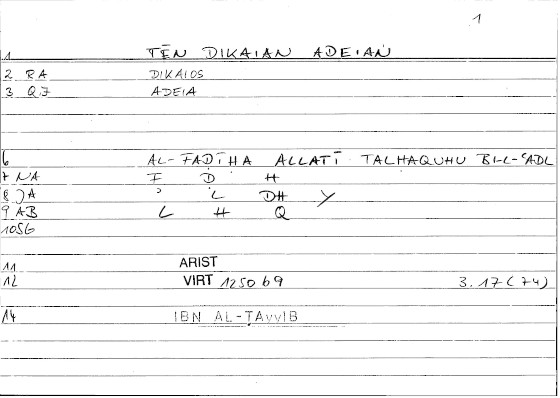 1
1 TĒN DIKAIAN ADEIAN
2 RA DIKAIOS
3 QJ ADEIA
6 AL-FADĪHA ALLATĪ TALHAQUHU BI-L-ʿADL
7 NA F Ḍ H
8 JA ʾ L DH Y
9 AB L H Q
10SG
11 ARIST
12 VIRT 1250 b 9 3.17(74)
14 IBN AL-ṬAYYIB